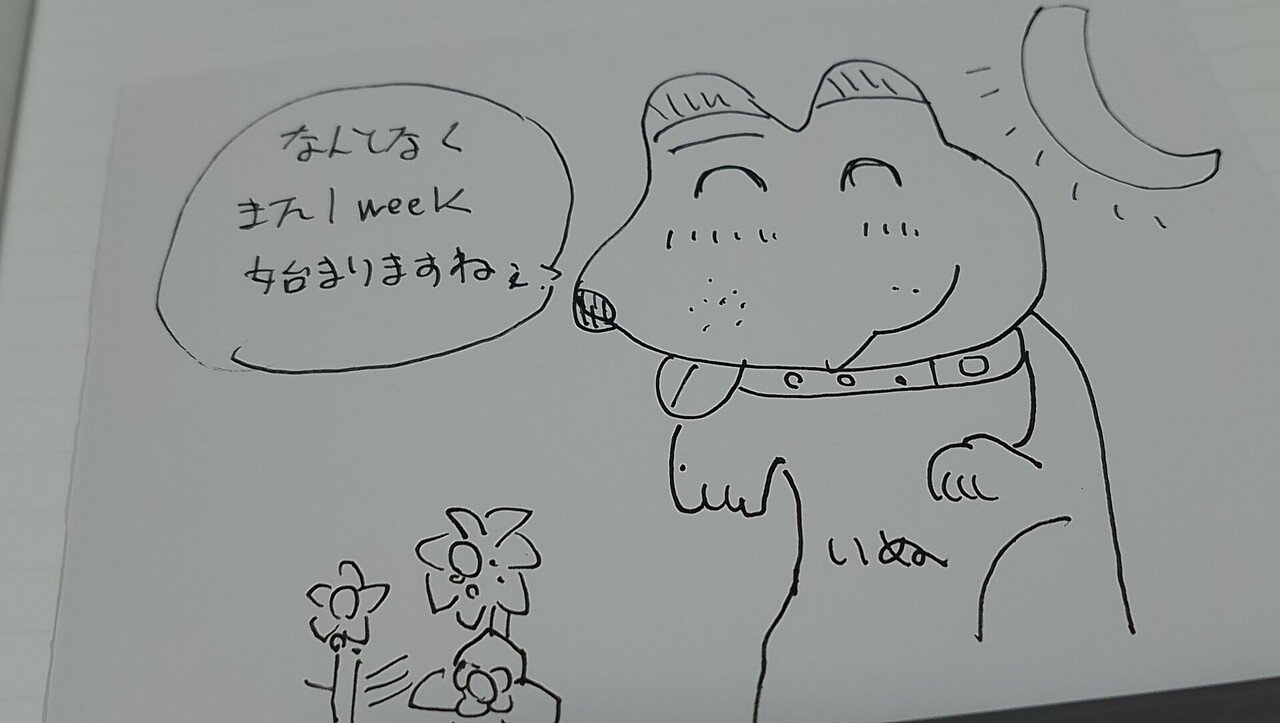 なんとなく
また1week
始まりますねぇ
いぬ